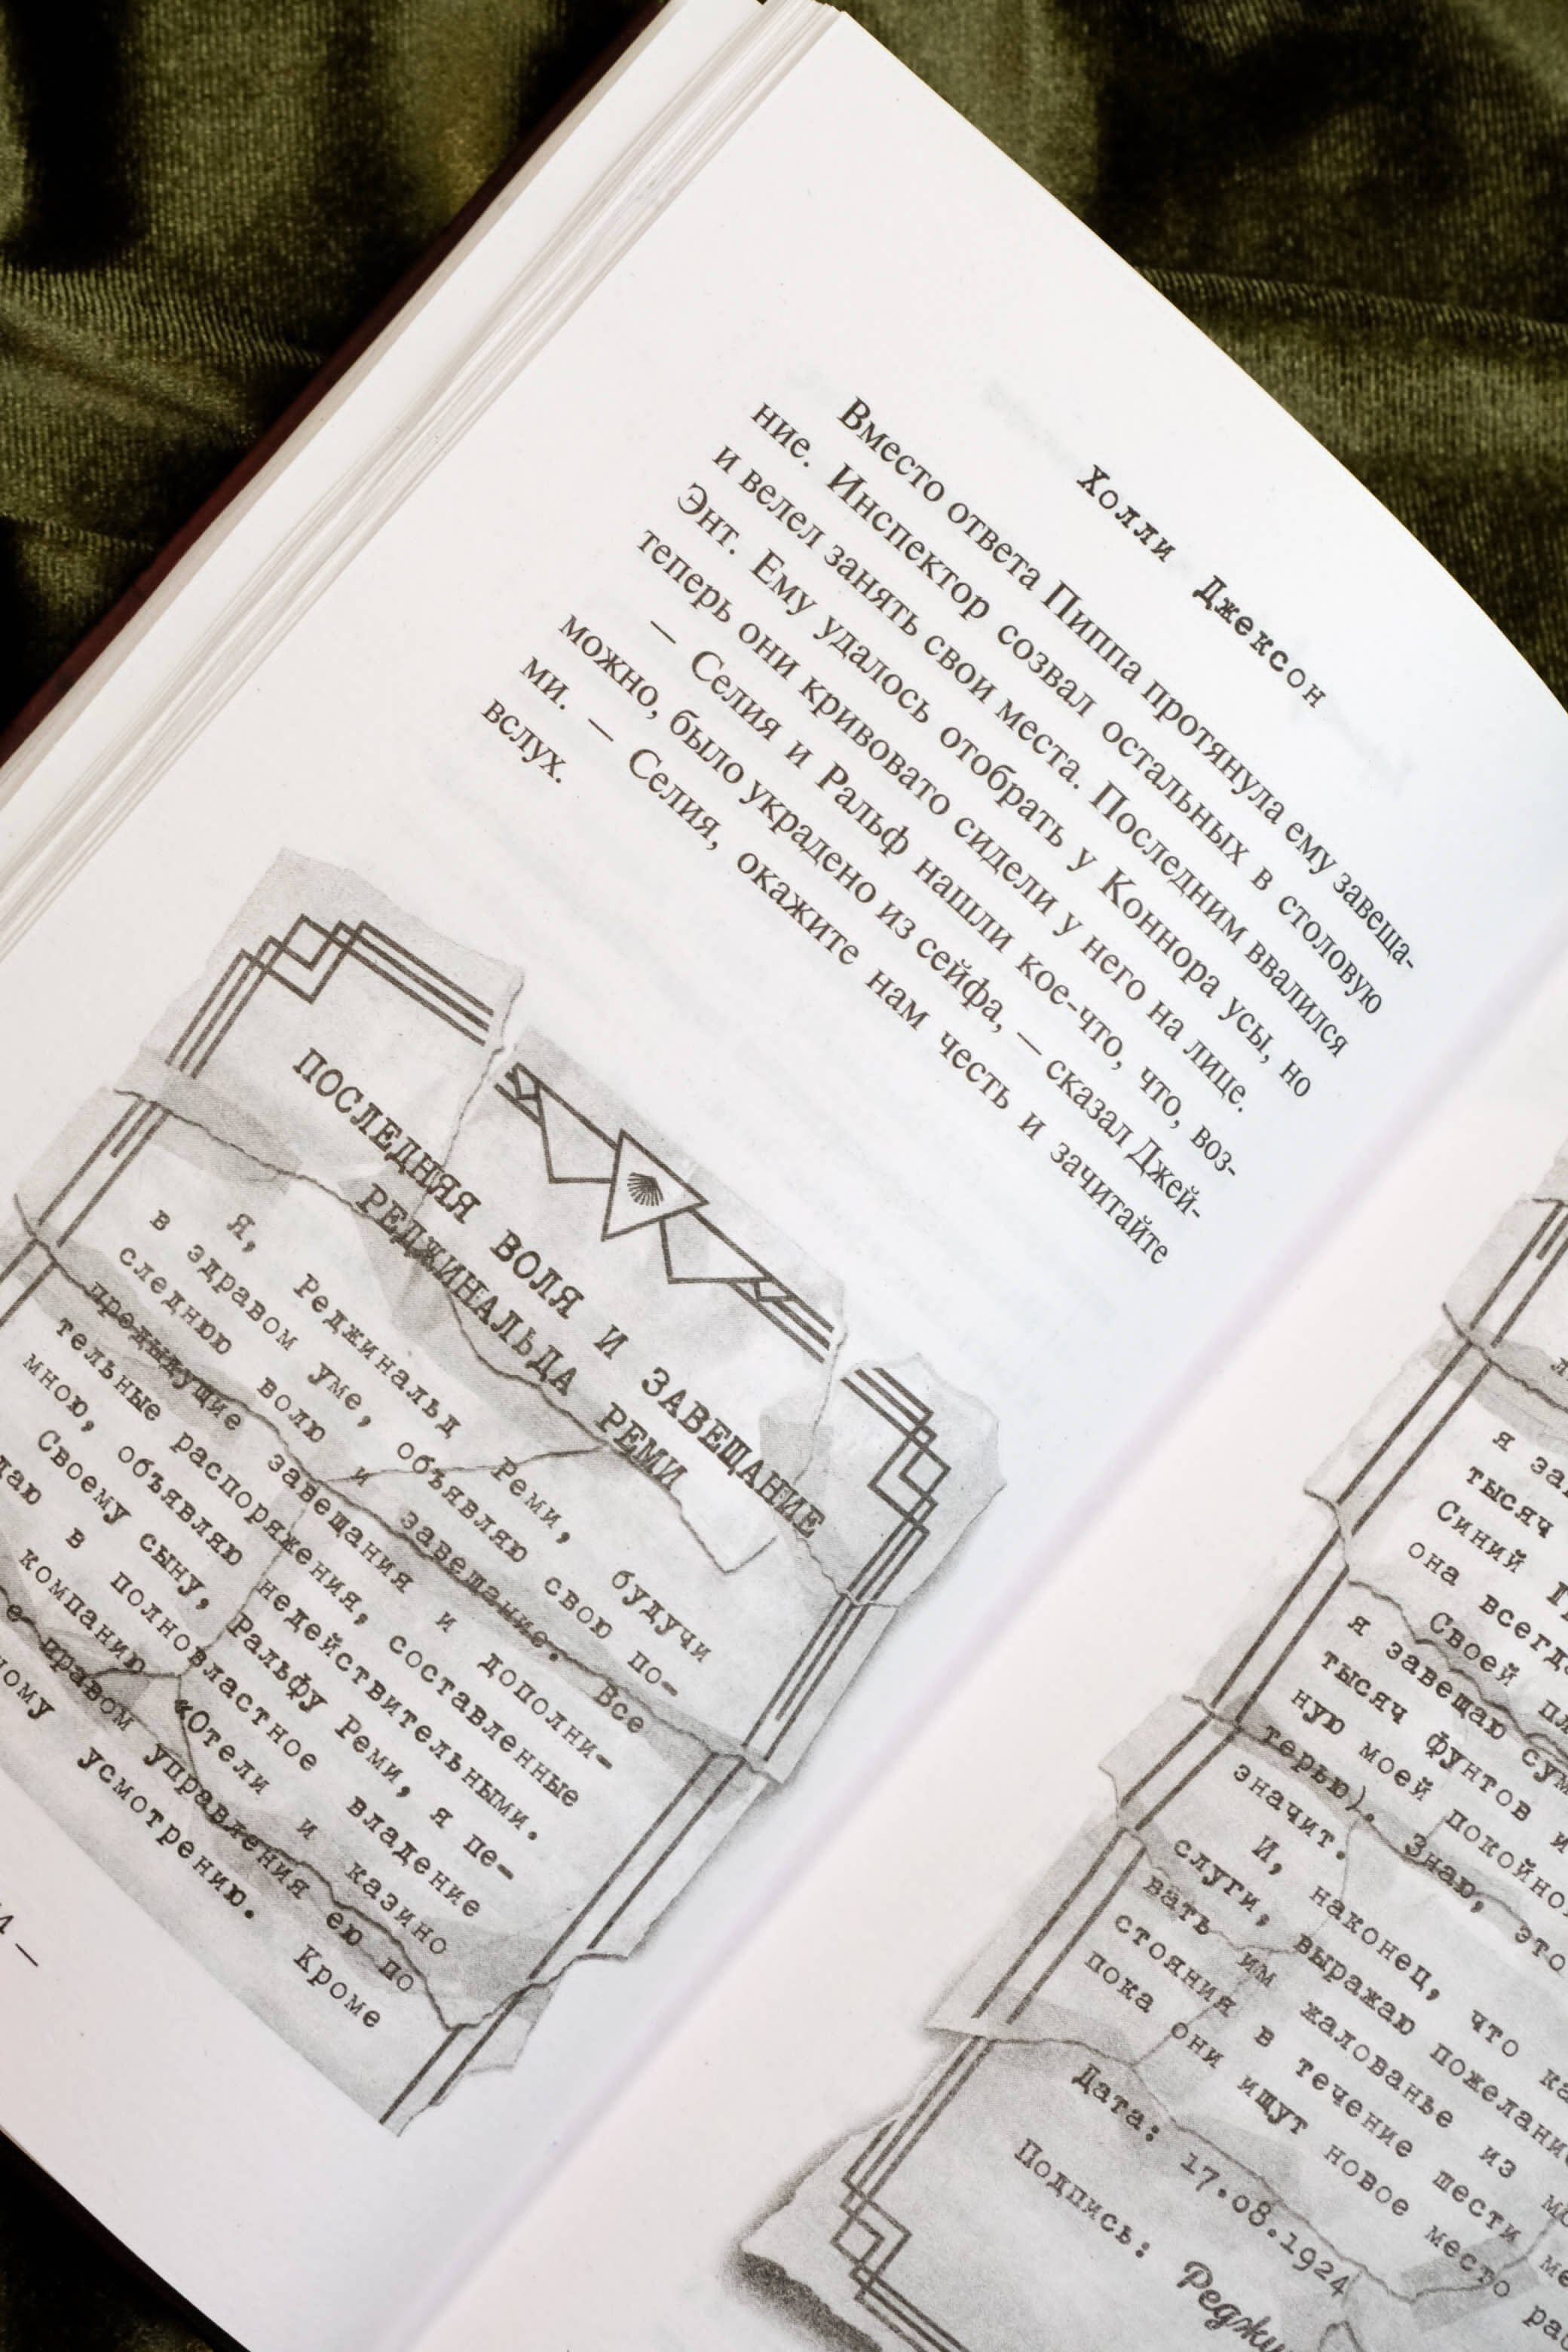 Холли Джексон
Вместо ответа Пиппа протянула ему завеща-
ние. Инспектор созвал остальных в столовую
и велел занять свои места. Последним ввалился
Энт. Ему удалось отобрать у Коннора усы, но
теперь они кривовато сидели у него на лице.
— Селия и Ральф нашли кое-что, что, воз-
можно, было украдено из сейфа, — сказал Джей-
ми. — Селия, окажите нам честь и зачитайте
вслух.
ПОСЛЕДНЯЯ ВОЛЯ И ЗАВЕЩАНИЕ
РЕДЖИНАЛЬДА РЕМИ
Я, Реджинальд Реми, будучи
в здравом уме, объявляю свою по-
следнюю волю и завещание. Все
предыдущие завещания и дополни-
тельные распоряжения, составленные
мною, объявляю недействительными.
Своему сыну, Ральфу Реми, я пе-
в полновластное владение
компанию «Отели и казино
правом управления ею по
усмотрению. Кроме
я
тысяч
Синий
она
Своей
я завещаю
тысяч фунтов и
ную моей
терью). Знаю, это
значит.
И, наконец, что
слуги, выражаю
вать им жалованье из
стояния в течение шести
пока они ищут новое место
Дата: 17.08.1924
Подпись: